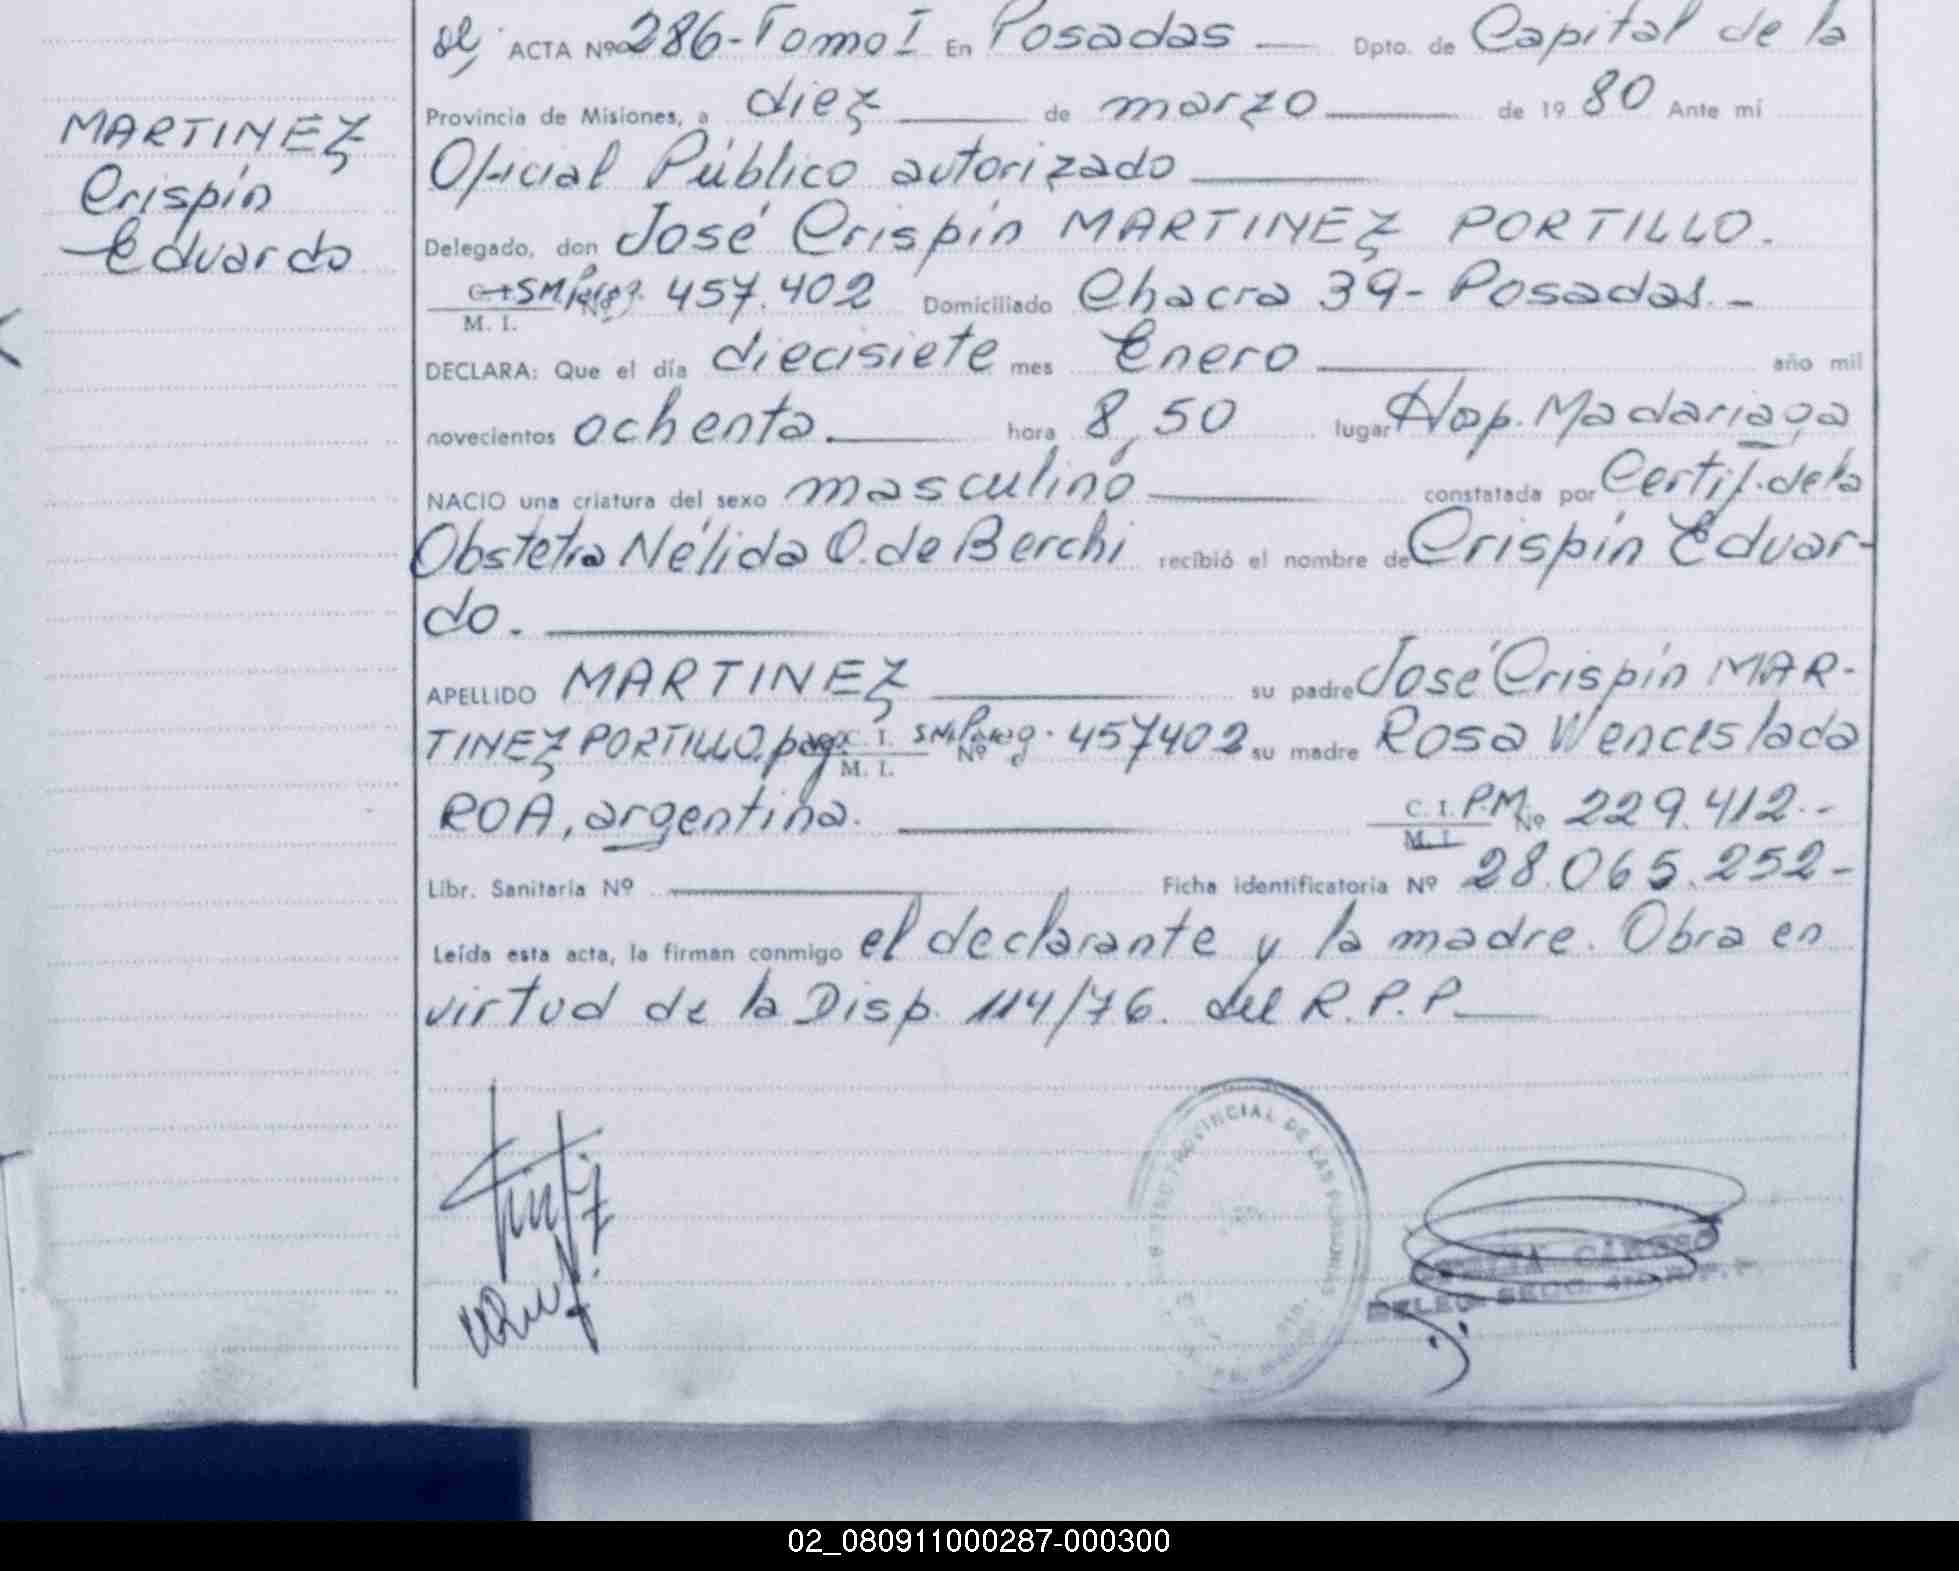 ACTA Nº 286-Tomo I En Posadas Dpto. de Capital de la
MARTINEZ
Crispín
Eduardo
Provincia de Misiones, a diez de marzo de 19 80 Ante mí
Oficial Público autorizado
Delegado, don José Crispín MARTINEZ PORTILLO.
C. I. Nº 457.402 Domiciliado Chacra 39- Posadas.-
M. I.
DECLARA: Que el día diecisiete mes Enero año mil
novecientos ochenta. hora 8,50 lugar Hosp. Madariaga
NACIO una criatura del sexo masculino constatada por Certif. de la
Obstetra Nélida O. de Berchi recibió el nombre de Crispín Eduar-
do.
APELLIDO MARTINEZ su padre José Crispín MAR-
TINEZ PORTILLO, parag. C. I. Nº 457402 su madre Rosa Wenceslada
M. I.
ROA, argentina. C. I. P.M. Nº 229.412.-
M. I.
Libr. Sanitaria Nº Ficha identificatoria Nº 28.065.252-
Leída esta acta, la firman conmigo el declarante y la madre. Obra en
virtud de la Disp. 114/76. del R.P.P.
PROVINCIAL DE LAS PERSONAS
02_080911000287-000300